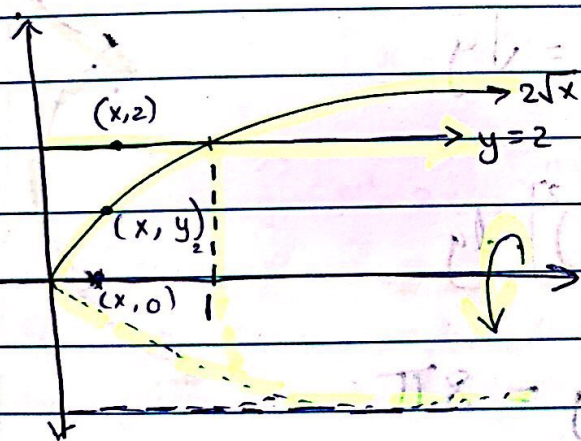 2√x
(x,2)
y = 2
(x, y)₂
(x,0)
1